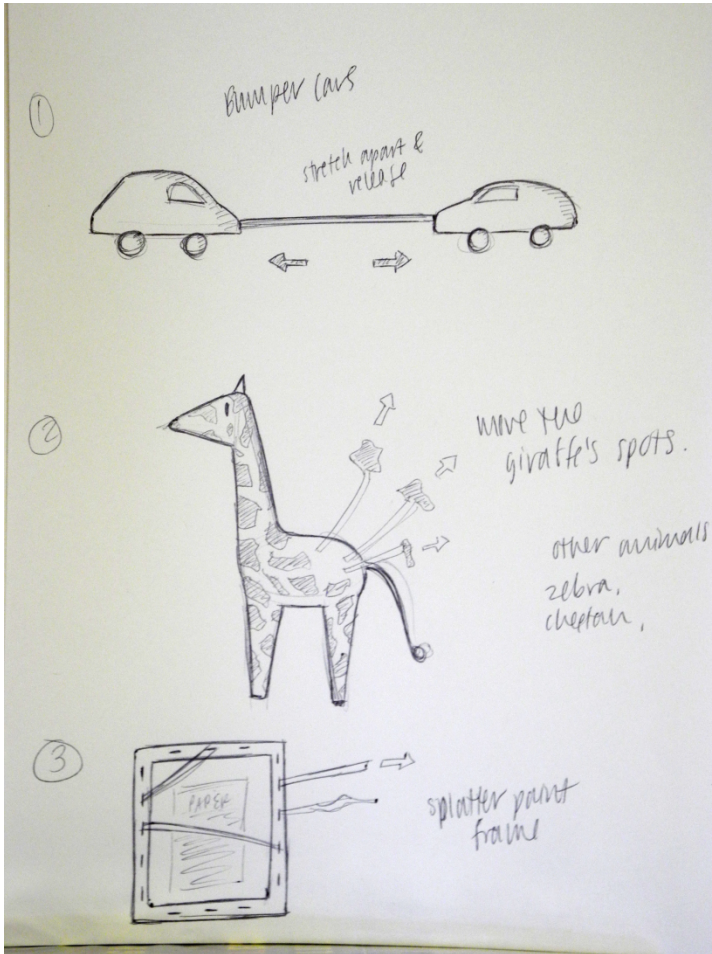 1
Bumper Cars
stretch apart &
release
2
move the
giraffe's spots.
other animals
zebra,
cheetah,
3
PAPER
splatter paint
frame